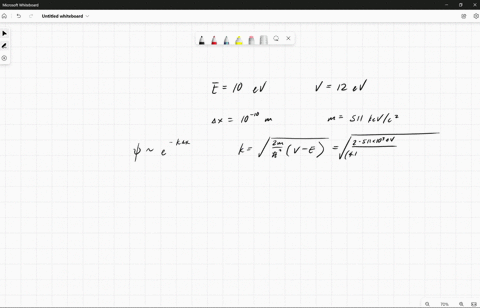 Microsoft Whiteboard
Untitled whiteboard
E = 10 eV V = 12 eV
Δx = 10⁻¹⁰ m m = 511 keV/c²
ψ ~ e^(-kΔx) k = √(2m/ħ² (V - E)) = √(2·511×10³ eV/(ħ
70%